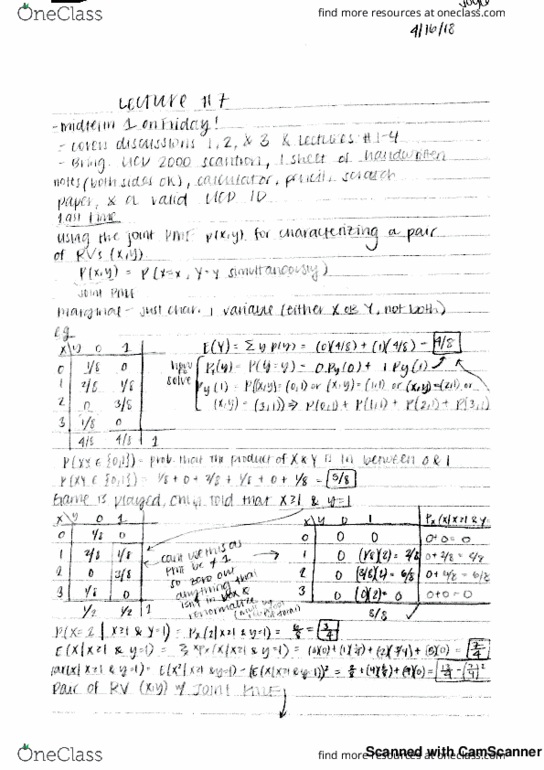 OneClass
find more resources at oneclass.com
4/16/18
Lecture #7
- midterm 1 on Friday!
- covers discussions 1, 2, & 3 & lectures #1-4
- Bring UCD 2000 scantron, 1 sheet of handwritten
notes (both sides ok), calculator, pencil, scratch
paper, & a valid UCD ID
Last time
using the joint PMF p(x,y) for characterizing a pair
of RVs (X,Y)
P(x,y) = P(X=x, Y=y simultaneously)
Joint PMF
marginal - just char. 1 variable (either X or Y, not both)
eg
X\Y 0 1
0 1/8 0
1 2/8 1/8
2 0 3/8
3 1/8 0
4/8 4/8 1
E(Y) = Σ y p(y) = (0)(4/8) + (1)(4/8) = 4/8
solve
Py(y) = P(Y=y) = 0.Py(0) + 1 Py(1)
Py(1) = P((X,Y)=(0,1) or (X,Y)=(1,1) or (X,Y)=(2,1) or
(X,Y)=(3,1)) ⇒ P(0,1) + P(1,1) + P(2,1) + P(3,1)
P(XY ∈ {0,1}) = prob. that the product of X x Y is in between 0 & 1
P(XY ∈ {0,1}) = 1/8 + 0 + 2/8 + 1/8 + 0 + 1/8 = 5/8
Game is played, only told that X≥1 & Y=1
X\Y 0 1
0 1/8 0
1 2/8 1/8
2 0 3/8
3 1/8 0
1/2 1/2 1
can't use this as
PMF bc ≠ 1
so zero out
anything that
isn't in box &
renormalize
X\Y 0 1 Px(X|X≥1 & Y=1)
0 0 0 0+0=0
1 0 (1/8)(2)=2/8 0+2/8=2/8
2 0 (3/8)(2)=6/8 0+6/8=6/8
3 0 (0)(2)=0 0+0=0
8/8
P(X=2 | X≥1 & Y=1) = Px(2|X≥1 & Y=1) = 6/8 = 3/4
E(X|X≥1 & Y=1) = Σ xPx(X|X≥1 & Y=1) = (0)(0)+(1)(1/4)+(2)(3/4)+(3)(0) = 7/4
var(X|X≥1 & Y=1) = E(X²|X≥1 & Y=1) - (E(X|X≥1 & Y=1))²
Pair of RV (X,Y) & Joint PMF
Scanned with CamScanner
OneClass
find more resources at oneclass.com